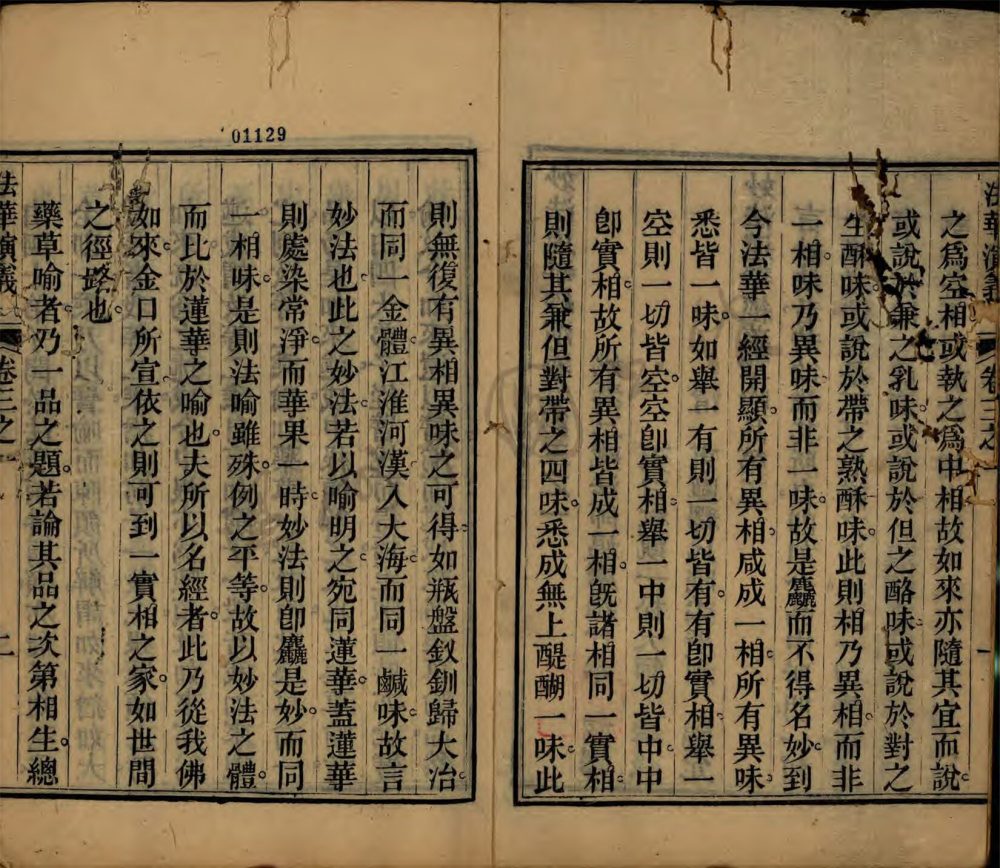 法華演義 卷三之一
之爲空相或執之爲中相故如來亦隨其宜而說。
或說於兼之乳味。或說於但之酪味。或說於對之
生酥味。或說於帶之熟酥味。此則相乃異相。而非
一相。味乃異味。而非一味。故是麤而不得名妙。到
今法華一經開顯。所有異相。咸成一相。所有異味。
悉皆一味。如舉一有則一切皆有。有卽實相。舉一
空則一切皆空。空卽實相。舉一中則一切皆中。中
卽實相。故所有異相皆成一相。旣諸相同一實相。
則隨其兼但對帶之四味。悉成無上醍醐一味。此
01129
則無復有異相異味之可得。如瓶盤釵釧歸大冶
而同一金體。江淮河漢入大海。而同一鹹味。故言
妙法也。此之妙法。若以喻明之。宛同蓮華。蓋蓮華
則處染常淨。而華果一時。妙法則卽麤是妙。而同
一相味。是則法喻雖殊。例之平等。故以妙法之體。
而比於蓮華之喻也。夫所以名經者。此乃從我佛
如來金口所宣。依之則可到一實相之家。如世間
之徑路也。
藥草喻者。乃一品之題。若論其品之次第相生。總
法華演義 卷三之一 二